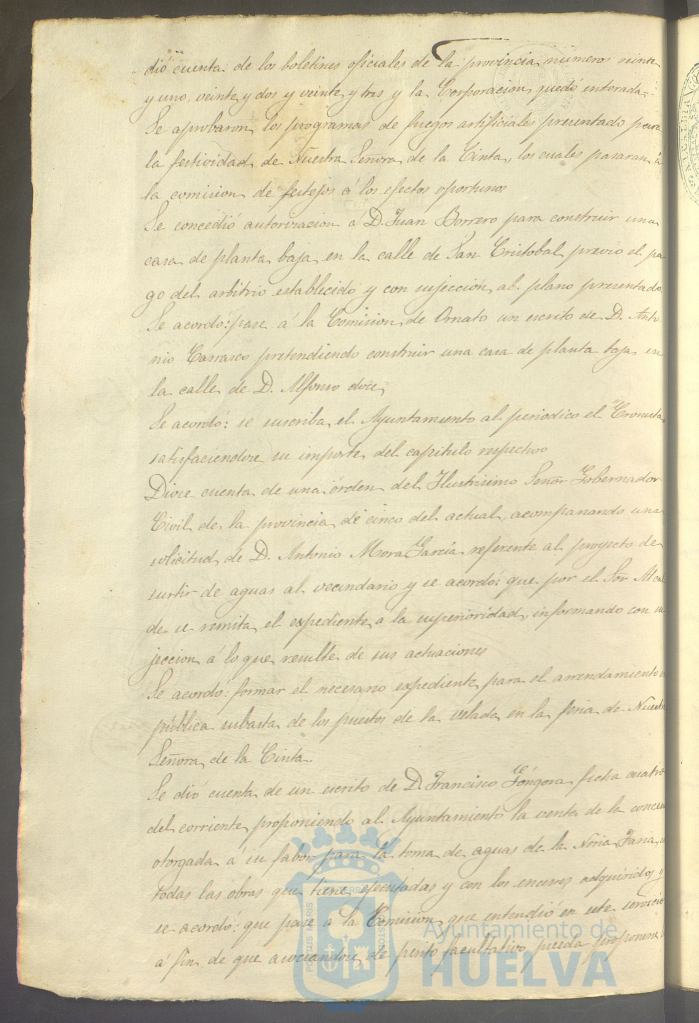 dió cuenta de los boletines oficiales de la provincia números veinte
y uno, veinte y dos y veinte y tres y la Corporacion quedó enterada.
Se aprobaron los programas de fuegos artificiales presentado para
la festividad de Nuestra Señora de la Cinta, los cuales pasaran á
la comision de festejos á los efectos oportunos
Se concedió autorizacion á D. Juan Borrero para construir una
casa de planta baja en la calle de San Cristobal previo el pa
go del arbitrio establecido y con sujección al plano presentado
Se acordó: pase á la Comision de Ornato un escrito de D. Anto
nio Carrasco pretendiendo construir una casa de planta baja en
la calle de D. Alfonso doce,
Se acordó: se suscriba el Ayuntamiento al periodico el Cronista
satisfaciendose su importe del capitulo respectivo
Diose cuenta de una órden del Ilustrisimo Señor Gobernador
Civil de la provincia de cinco del actual, acompañando una
solicitud de D. Antonio Mora García referente al proyecto de
surtir de aguas al vecindario y se acordó: que por el Sor Alcal
de se remita el expediente a la superioridad, informando con su
jeccion á lo que resulte de sus actuaciones
Se acordó: formar el necesario expediente para el arrendamiento
pública subasta de los puestos de la velada en la feria de Nuestra
Señora de la Cinta.
Se dió cuenta de un escrito de D. Francisco Góngora fecha cuatro
del corriente proponiendo al Ayuntamiento la venta de la
otorgada a su fabor para la toma de aguas de la Noria
todas las obras que tiene ejecutadas y con los enseres adquiridos y
se acordó: que pase á la Comision que entendió en este servicio
á fin de que asociandose de perito facultativo pueda proponer
Ayuntamiento de
HUELVA